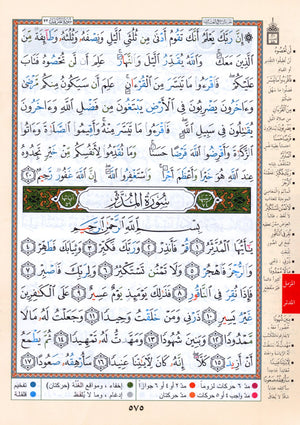 إِنَّ رَبَّكَ يَعْلَمُ أَنَّكَ تَقُومُ أَدْنَىٰ مِن ثُلُثَيِ ٱلَّيْلِ وَنِصْفَهُۥ وَثُلُثَهُۥ وَطَآئِفَةٌ مِّنَ
ٱلَّذِينَ مَعَكَ ۚ وَٱللَّهُ يُقَدِّرُ ٱلَّيْلَ وَٱلنَّهَارَ ۚ عَلِمَ أَن لَّن تُحْصُوهُ فَتَابَ
عَلَيْكُمْ ۖ فَٱقْرَءُوا۟ مَا تَيَسَّرَ مِنَ ٱلْقُرْءَانِ ۚ عَلِمَ أَن سَيَكُونُ مِنكُم مَّرْضَىٰ ۙ
وَءَاخَرُونَ يَضْرِبُونَ فِى ٱلْأَرْضِ يَبْتَغُونَ مِن فَضْلِ ٱللَّهِ ۙ وَءَاخَرُونَ
يُقَٰتِلُونَ فِى سَبِيلِ ٱللَّهِ ۖ فَٱقْرَءُوا۟ مَا تَيَسَّرَ مِنْهُ ۚ وَأَقِيمُوا۟ ٱلصَّلَوٰةَ وَءَاتُوا۟
ٱلزَّكَوٰةَ وَأَقْرِضُوا۟ ٱللَّهَ قَرْضًا حَسَنًا ۚ وَمَا تُقَدِّمُوا۟ لِأَنفُسِكُم مِّنْ خَيْرٍ تَجِدُوهُ
عِندَ ٱللَّهِ هُوَ خَيْرًا وَأَعْظَمَ أَجْرًا ۚ وَٱسْتَغْفِرُوا۟ ٱللَّهَ ۖ إِنَّ ٱللَّهَ غَفُورٌ رَّحِيمٌۢ ﴿٢٠﴾
سُورَةُ ٱلْمُدَّثِّر
بِسْمِ ٱللَّهِ ٱلرَّحْمَٰنِ ٱلرَّحِيمِ
يَٰٓأَيُّهَا ٱلْمُدَّثِّرُ ﴿١﴾ قُمْ فَأَنذِرْ ﴿٢﴾ وَرَبَّكَ فَكَبِّرْ ﴿٣﴾ وَثِيَابَكَ فَطَهِّرْ ﴿٤﴾
وَٱلرُّجْزَ فَٱهْجُرْ ﴿٥﴾ وَلَا تَمْنُن تَسْتَكْثِرُ ﴿٦﴾ وَلِرَبِّكَ فَٱصْبِرْ ﴿٧﴾
فَإِذَا نُقِرَ فِى ٱلنَّاقُورِ ﴿٨﴾ فَذَٰلِكَ يَوْمَئِذٍ يَوْمٌ عَسِيرٌ ﴿٩﴾ عَلَى ٱلْكَٰفِرِينَ
غَيْرُ يَسِيرٍ ﴿١٠﴾ ذَرْنِى وَمَنْ خَلَقْتُ وَحِيدًا ﴿١١﴾ وَجَعَلْتُ لَهُۥ مَالًا
مَّمْدُودًا ﴿١٢﴾ وَبَنِينَ شُهُودًا ﴿١٣﴾ وَمَهَّدتُّ لَهُۥ تَمْهِيدًا ﴿١٤﴾ ثُمَّ يَطْمَعُ
أَنْ أَزِيدَ ﴿١٥﴾ كَلَّآ ۖ إِنَّهُۥ كَانَ لِءَايَٰتِنَا عَنِيدًا ﴿١٦﴾ سَأُرْهِقُهُۥ صَعُودًا ﴿١٧﴾
المزمل
المدثر
مدّ ٦ حركات لزوماً مدّ ٢ أو ٤ أو ٦ جوازاً إخفاء، ومواقع الغُنَّة (حركتان) تفخيم
مدّ واجب ٤ أو ٥ حركات مدّ حركتان إدغام، وما لا يُلفَظ قلقلة
٥٧٥